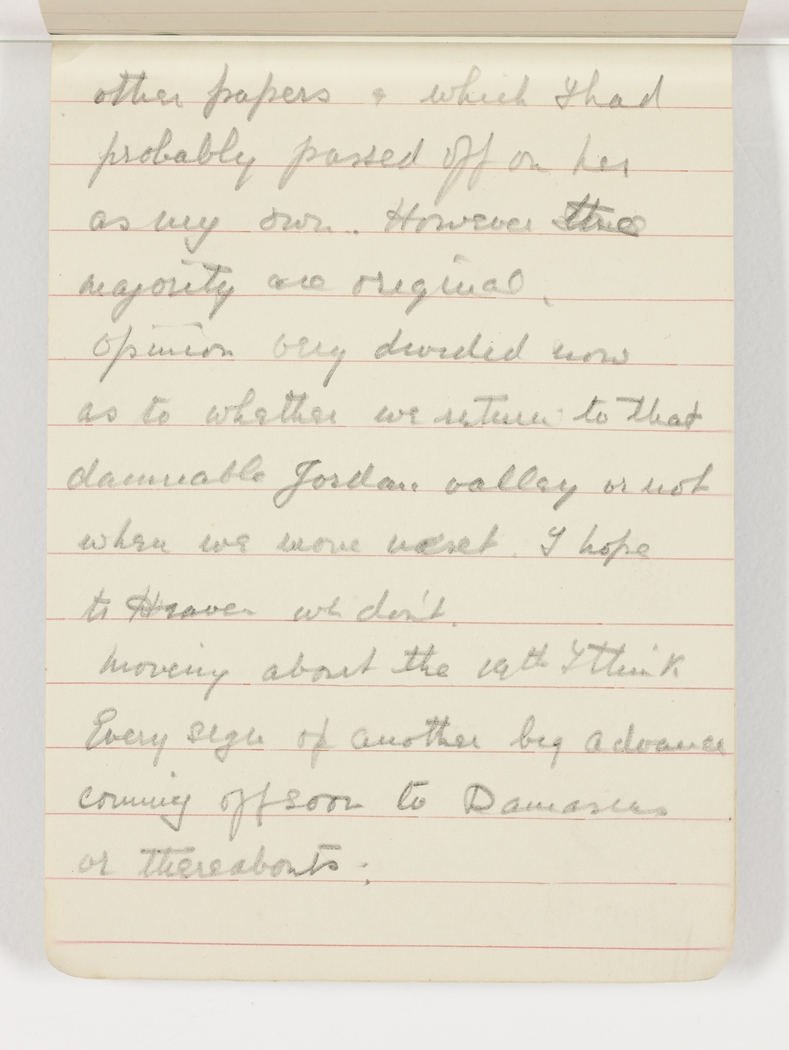 other papers & which I had
probably passed off on her
as my own. However the
majority are original.
Opinion very divided now
as to whether we return to that
damnable Jordan valley or not
when we move next. I hope
to Heaven we don't.
Moving about the 19th I think
Every sign of another big advance
coming off soon to Damascus
or thereabouts.